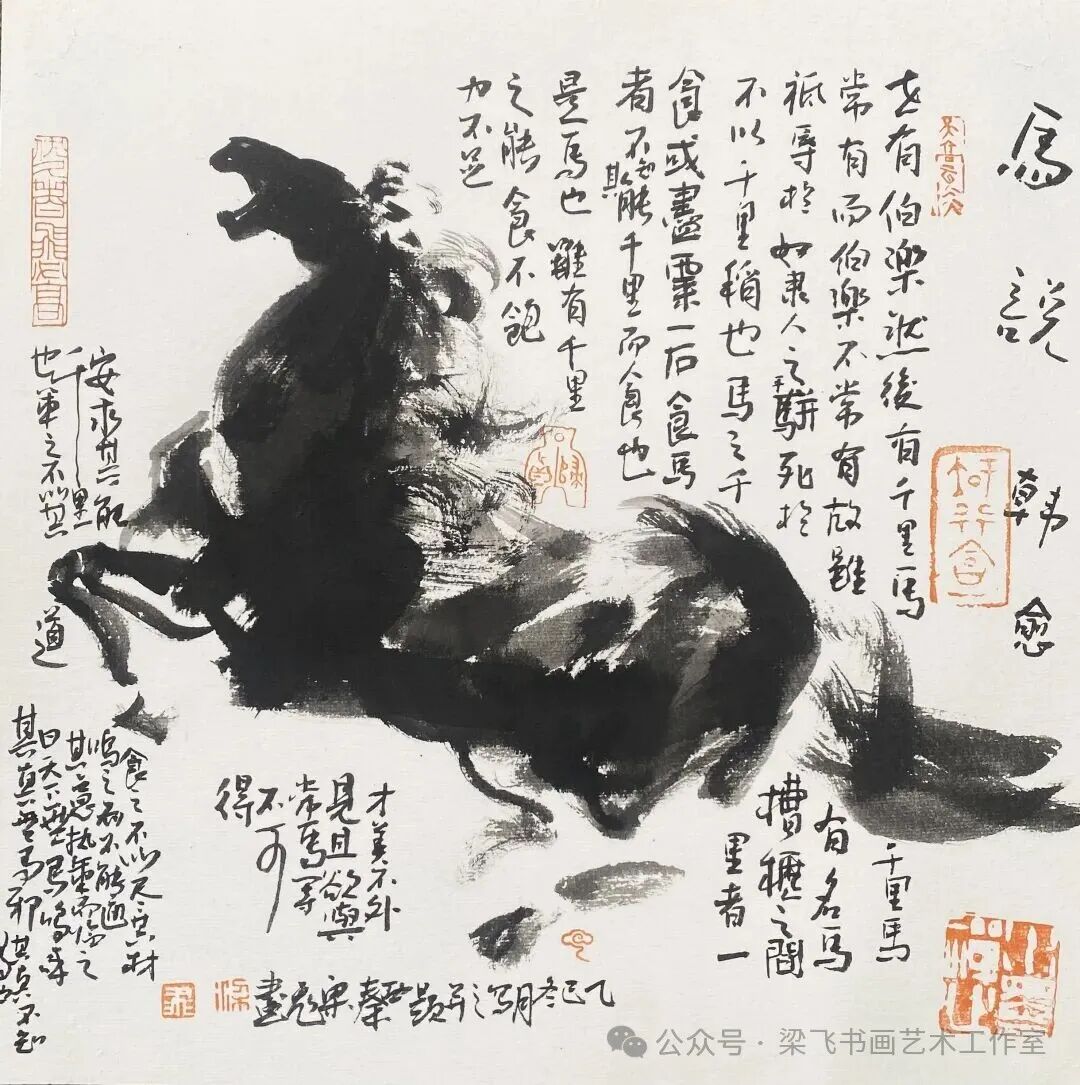 馬說
韩愈
世有伯樂然後有千里馬
千里馬
常有而伯樂不常有故雖
有名馬
祗辱於奴隶人之手駢死於
槽櫪之間
不以千里稱也馬之千
里者一
食或盡粟一石食馬
者不知其能千里而食也
是馬也雖有千里
之能食不飽
力不足
才美不外
見且欲與
常馬等
不可
得
安求其能
千里
也策之不以其
道
食之不以尽其材
鳴之而不能通
其意执策而临之
曰天下無馬嗚呼
其真無馬邪其真不知
馬也
乙巳冬月
公众号 · 梁飞书画艺术工作室